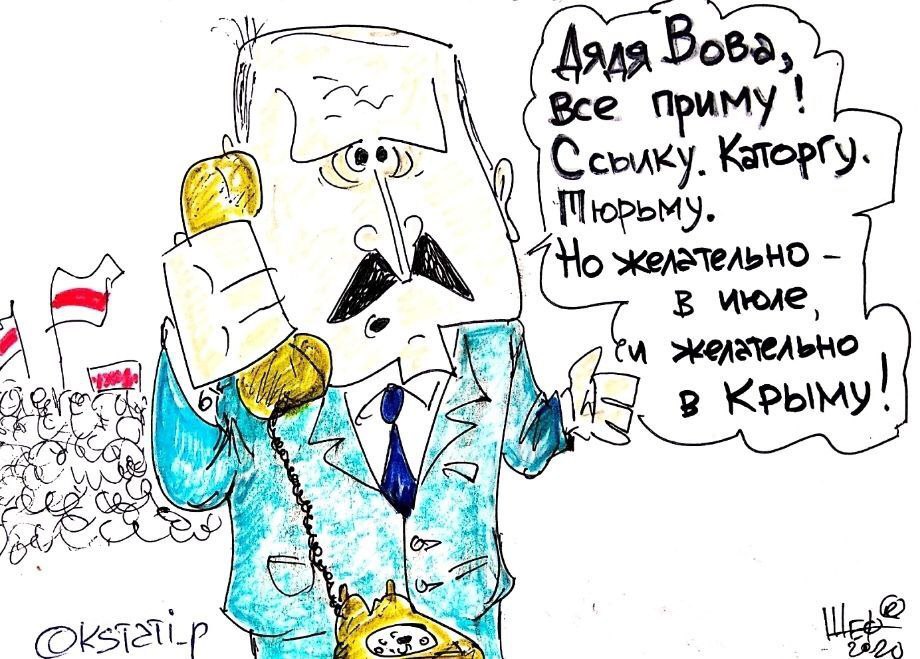 Дядя Вова,
все приму!
Ссылку. Каторгу.
Тюрьму.
Но желательно –
в июле,
и желательно
в Крыму!
©kstati_p
Шеф
2020